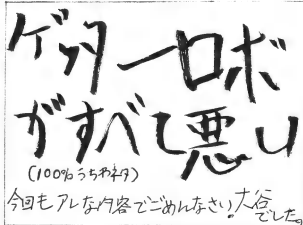 ゲッターロボ
がすべて悪い
(100%うちわネタ)
今回もアレな内容でごめんなさい。大谷
でした。